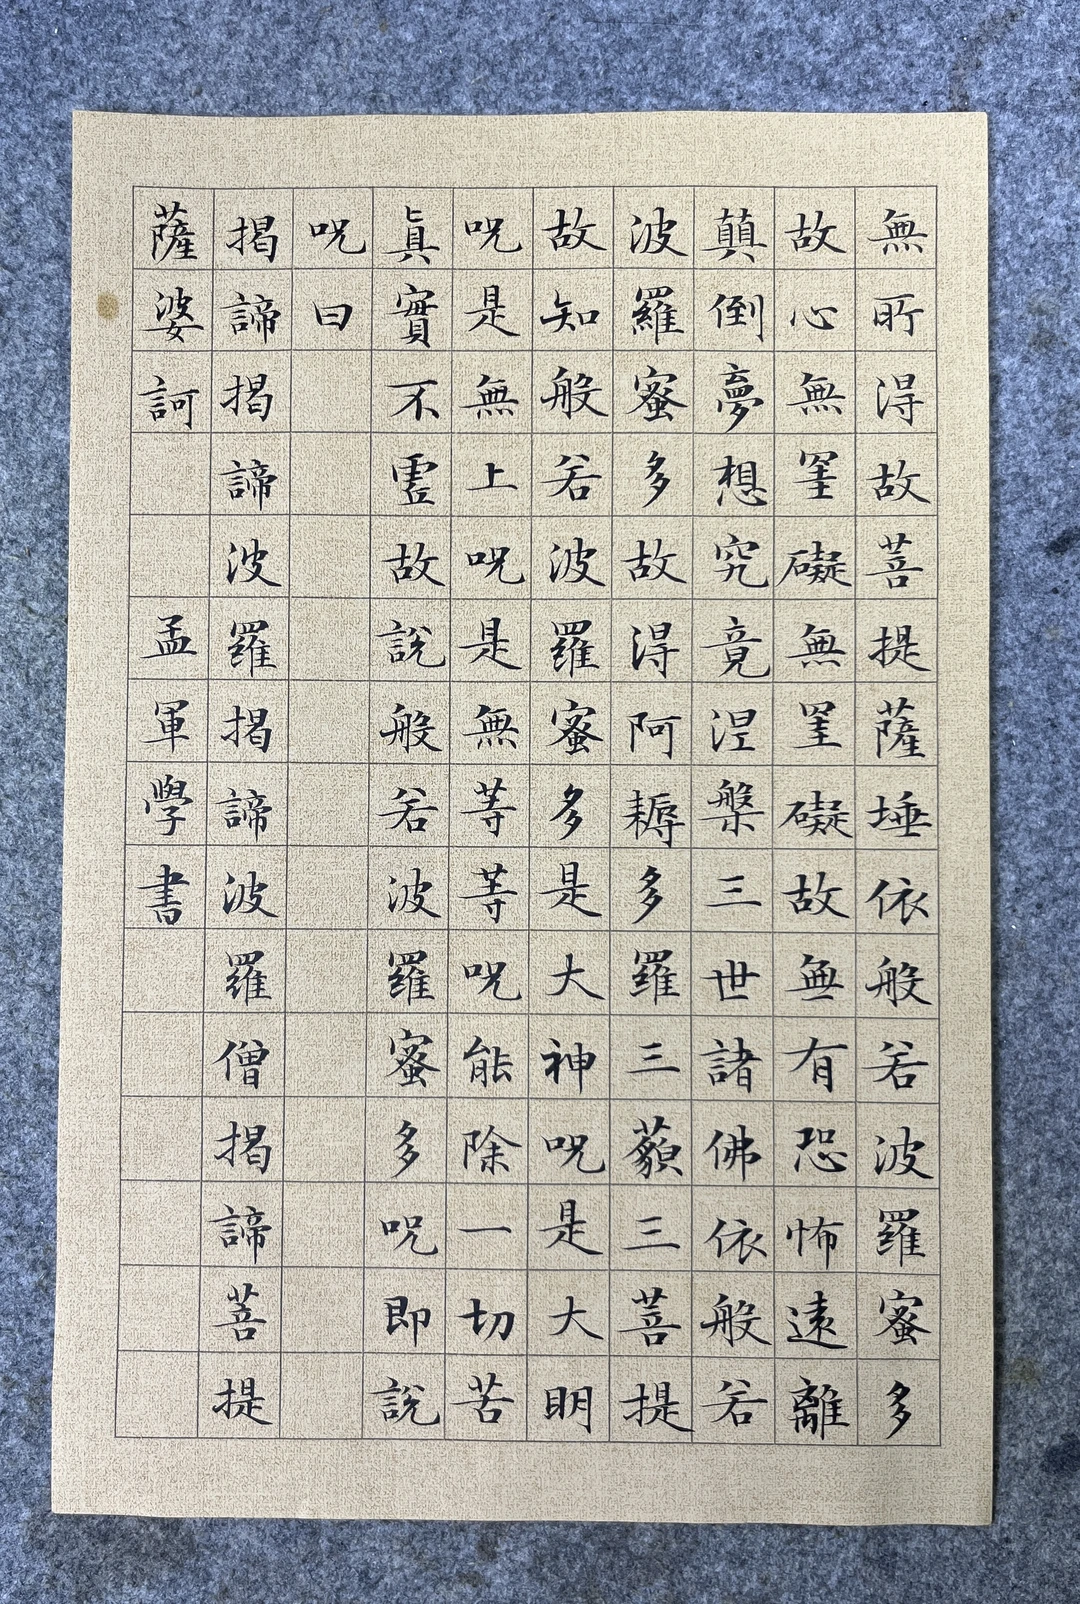 無所得故菩提薩埵依般若波羅蜜多
故心無罣礙無罣礙故無有恐怖遠離
顛倒夢想究竟涅槃三世諸佛依般若
波羅蜜多故得阿耨多羅三藐三菩提
故知般若波羅蜜多是大神呪是大明
呪是無上呪是無等等呪能除一切苦
真實不虛故說般若波羅蜜多呪即說
呪曰
揭諦揭諦波羅揭諦波羅僧揭諦菩提
薩婆訶
孟軍學書